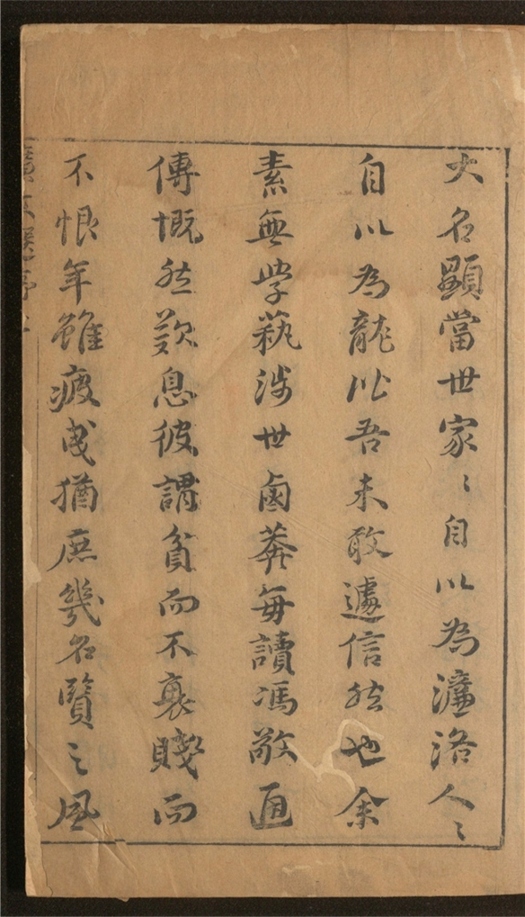 大名顯當世家〻自以為濂洛人〻
自以為龍比吾未敢遽信然也余
素無学藝涉世鹵莽每讀馮敬通
傳慨然歎息彼謂貧而不衰賤而
不恨年雖疲曳猶庶幾名賢之風